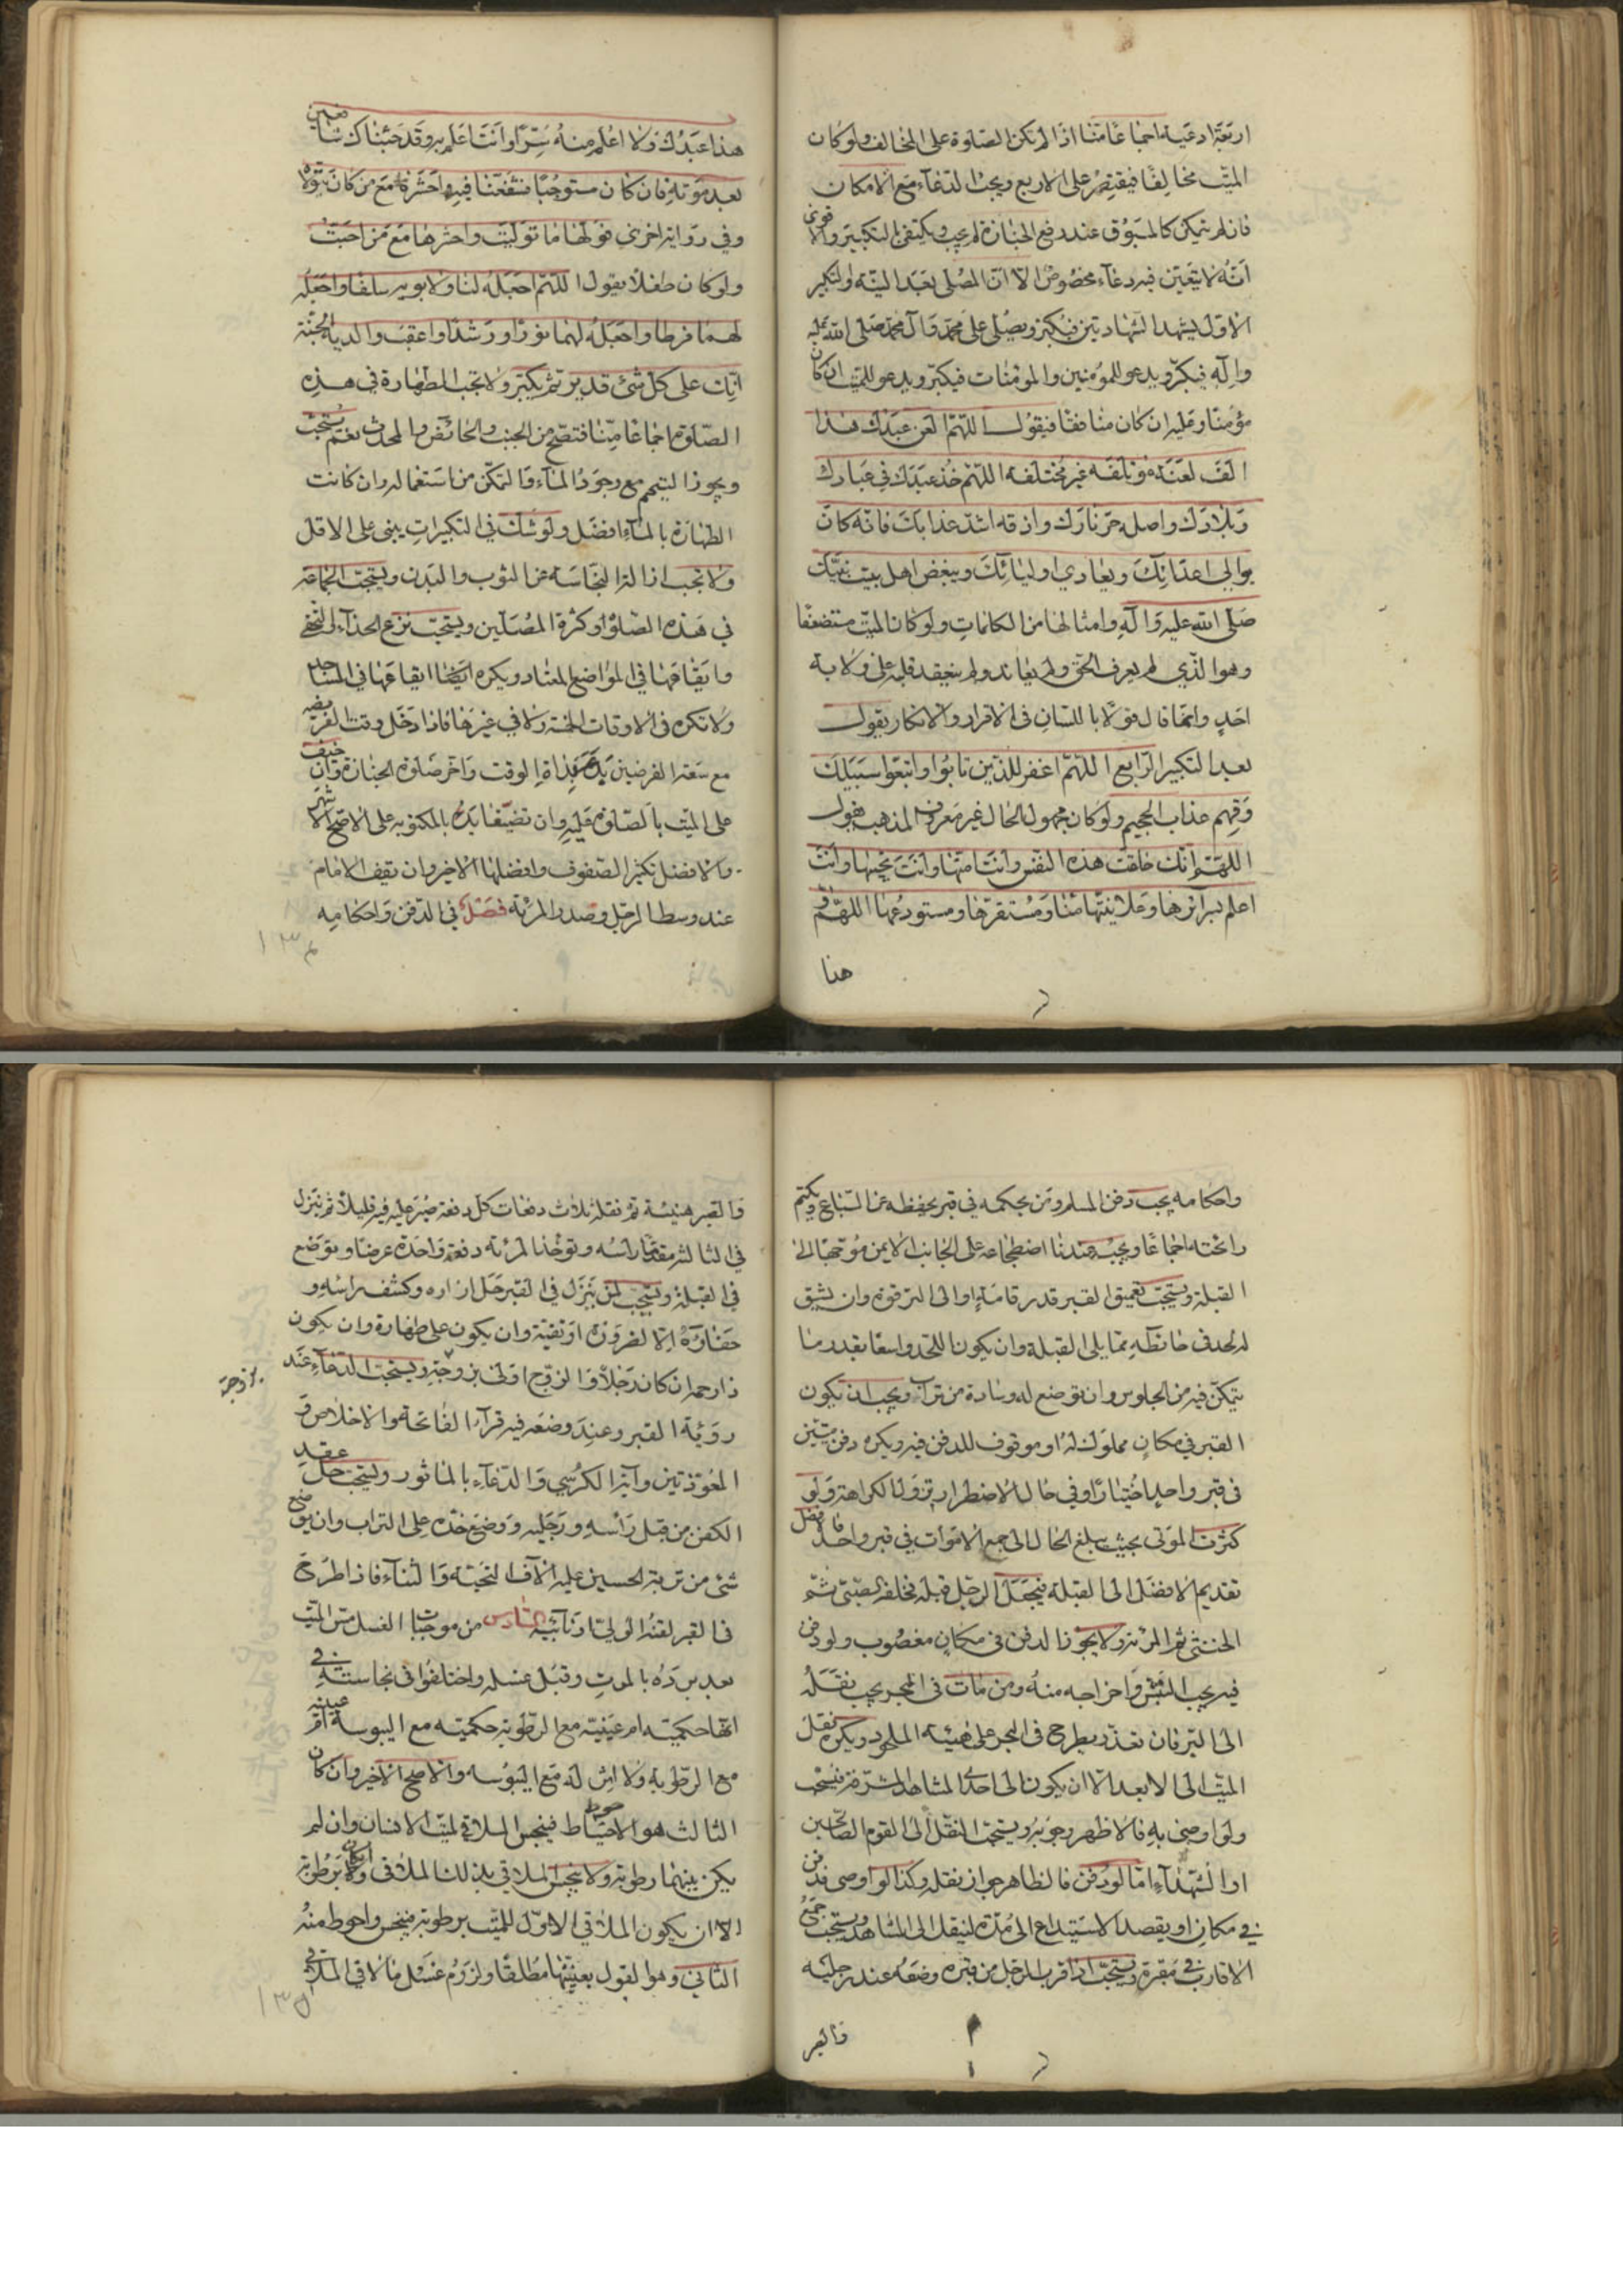 اربعة ادعية اجماعا منا اذا لم تكن الصلوة على المخالف ولو كان
الميت مخالفا فيقتصر على الاربع ويجب الدعاء مع الامكان
فان لم يتمكن كالمسبوق عند رفع الجنازة لم يجب ويكتفى بالتكبير والاقوى
انه لا يتعين فيه دعاء مخصوص الا ان المصلى بعد النية والتكبير
الاول يشهد الشهادتين فيكبر ويصلى على محمد وآل محمد صلى الله عليه
وآله فيكبر ويدعو للمؤمنين والمؤمنات فيكبر ويدعو للميت ان كان
مؤمنا وعليه ان كان منافقا فيقول اللهم العن عبدك هذا
الف لعنة مؤتلفة غير مختلفة اللهم خذ عبدك في عبادك
وبلادك واصله حر نارك واذقه اشد عذابك فانه كان
يوالي اعدائك ويعادي اوليائك ويبغض اهل بيت نبيك
صلى الله عليه وآله وامثالها من الكلمات ولو كان الميت مستضعفا
وهو الذي لم يعرف الحق ولم يعاند ولم ينعقد قلبه على ولاية
احد وانما قال قولا باللسان في الاقرار والانكار يقول
بعد التكبير الرابع اللهم اغفر للذين تابوا واتبعوا سبيلك
وقهم عذاب الجحيم ولو كان مجهول الحال غير معروف المذهب يقول
اللهم انك خلقت هذه النفس وانت امتها وانت تحييها وانت
اعلم بسرائرها وعلانيتها منا ومستقرها ومستودعها اللهم و
هذا
هذا عبدك ولا اعلم منه سرا وانت اعلم به وقد جئناك شافعين
بعد موته فان كان مستوجبا فشفعنا فيه واحشره مع من كان يتولاه
وفي رواية اخرى قولها ما توليت واحشرها مع من احبت
ولو كان طفلا يقول اللهم اجعله لنا ولابويه سلفا واجعله
لهما فرطا واجعله لهما نورا ورشدا واعقب والديه الجنة
انك على كل شئ قدير ثم يكبر ولا تجب الطهارة في هذه
الصلوة اجماعا منا فتصح من الجنب والحائض والمحدث نعم يستحب
ويجوز التيمم مع وجود الماء والتمكن من استعماله وان كانت
الطهارة بالماء افضل ولو شك في التكبيرات يبنى على الاقل
ولا تجب ازالة النجاسة عن الثوب والبدن ويستحب الجماعة
في هذه الصلوة وكثرة المصلين ويستحب نزع الحذاء لا الخف
وايقاعها في المواضع المعتادة ويكره ايضا ايقاعها في المساجد
ولا تكره في الاوقات الخمسة ولا في غيرها فاذا دخل وقت الفريضة
مع سعة الفرضين بذات الوقت واخر صلوة الجنازة وان خيف
على الميت بالصلوة عليه وان تضيقا بدء بالمكتوبة على الاصح الاشهر
والافضل تكثير الصفوف وافضلها الاخير وان يقف الامام
عند وسط الرجل وصدر المرئة فصل في الدفن واحكامه
١٣٤
واحكامه يجب دفن المسلم ومن بحكمه في قبر يحفظه عن السباع ويكتم
رائحته اجماعا ويجب عندنا اضطجاعه على الجانب الايمن موجها الى
القبلة ويستحب تعميق القبر قدر قامة او الى الترقوة وان يشق
له لحد في حائطه مما يلي القبلة وان يكون اللحد واسعا بقدر ما
يتمكن فيه من الجلوس وان توضع له وسادة من تراب ويجب ان يكون
القبر في مكان مملوك له او موقوف للدفن فيه ويكره دفن ميتين
في قبر واحد اختيارا وفي حال الاضطرار يزول الكراهة ولو
كثرت الموتى بحيث يبلغ الحال الى جمع الاموات في قبر واحد فالافضل
تقديم الافضل الى القبلة فيجعل الرجل قبله فخلفه الصبي ثم
الخنثى ثم المرئة ولا يجوز الدفن في مكان مغصوب ولو دفن
فيه يجب النبش واخراجه منه ومن مات في البحر يجب نقله
الى البر فان تعذر يطرح في البحر على هيئة الملحود ويكره نقل
الميت الى الابعد الا ان يكون الى احدى المشاهد المشرفة فيستحب
ولو اوصى به فالاظهر وجوبه ويستحب النقل الى القوم الصالحين
او الشهداء اما لو دفن فالظاهر جواز نقله وكذا لو اوصى فدفن
في مكان او يقصد الاستيداع الى مدة لينقل الى المشاهد ويستحب جمع
الاقارب في مقبرة ويستحب اذا قرب الرجل من قبره وضعه عند رجليه
فالقبر
والقبر هنيئة ثم نقله ثلاث دفعات كل دفعة يصبر عليه فيه قليلا ثم ينزل
في الثالثة مقدما رأسه وتوخذ المرئة دفعة واحدة عرضا وتوضع
في القبلة ويستحب لمن ينزل في القبر حل ازاره وكشف راسه و
حفاؤه الا لضرورة او تقية وان يكون على طهارة وان يكون
ذا رحم ان كان رجلا والزوج اولى بزوجته ويستحب الدعاء عند
بزوجة
رؤية القبر وعند وضعه فيه قرائة الفاتحة والاخلاص و
المعوذتين وآية الكرسي والدعاء بالماثور ويستحب حل عقد
الكفن من قبل رأسه ورجليه ووضع خده على التراب وان يوضع
شئ من تربة الحسين عليه آلاف التحية والثناء فاذا طرح
في القبر لقنه الولي او نائبه السادس من موجبات الغسل مس الميت
بعد برده بالموت وقبل غسله واختلفوا في نجاسته في
انها حكمية ام عينية مع الرطوبة حكمية مع اليبوسة ام عينية
مع الرطوبة ولا اثر له مع اليبوسة والاصح الاخير وان كان
الثالث هو الاحتياط فينجس الملاقي لميت الانسان وان لم
يكن بينهما رطوبة ولا ينجس الملاقي بذلك الملاقي ولو كان برطوبة
الا ان يكون الملاقي الاول للميت برطوبة فينجس واحوط منه
الثاني وهو القول بعينيتها مطلقا ولزوم غسل ما لاقى الملاقي
١٣٥